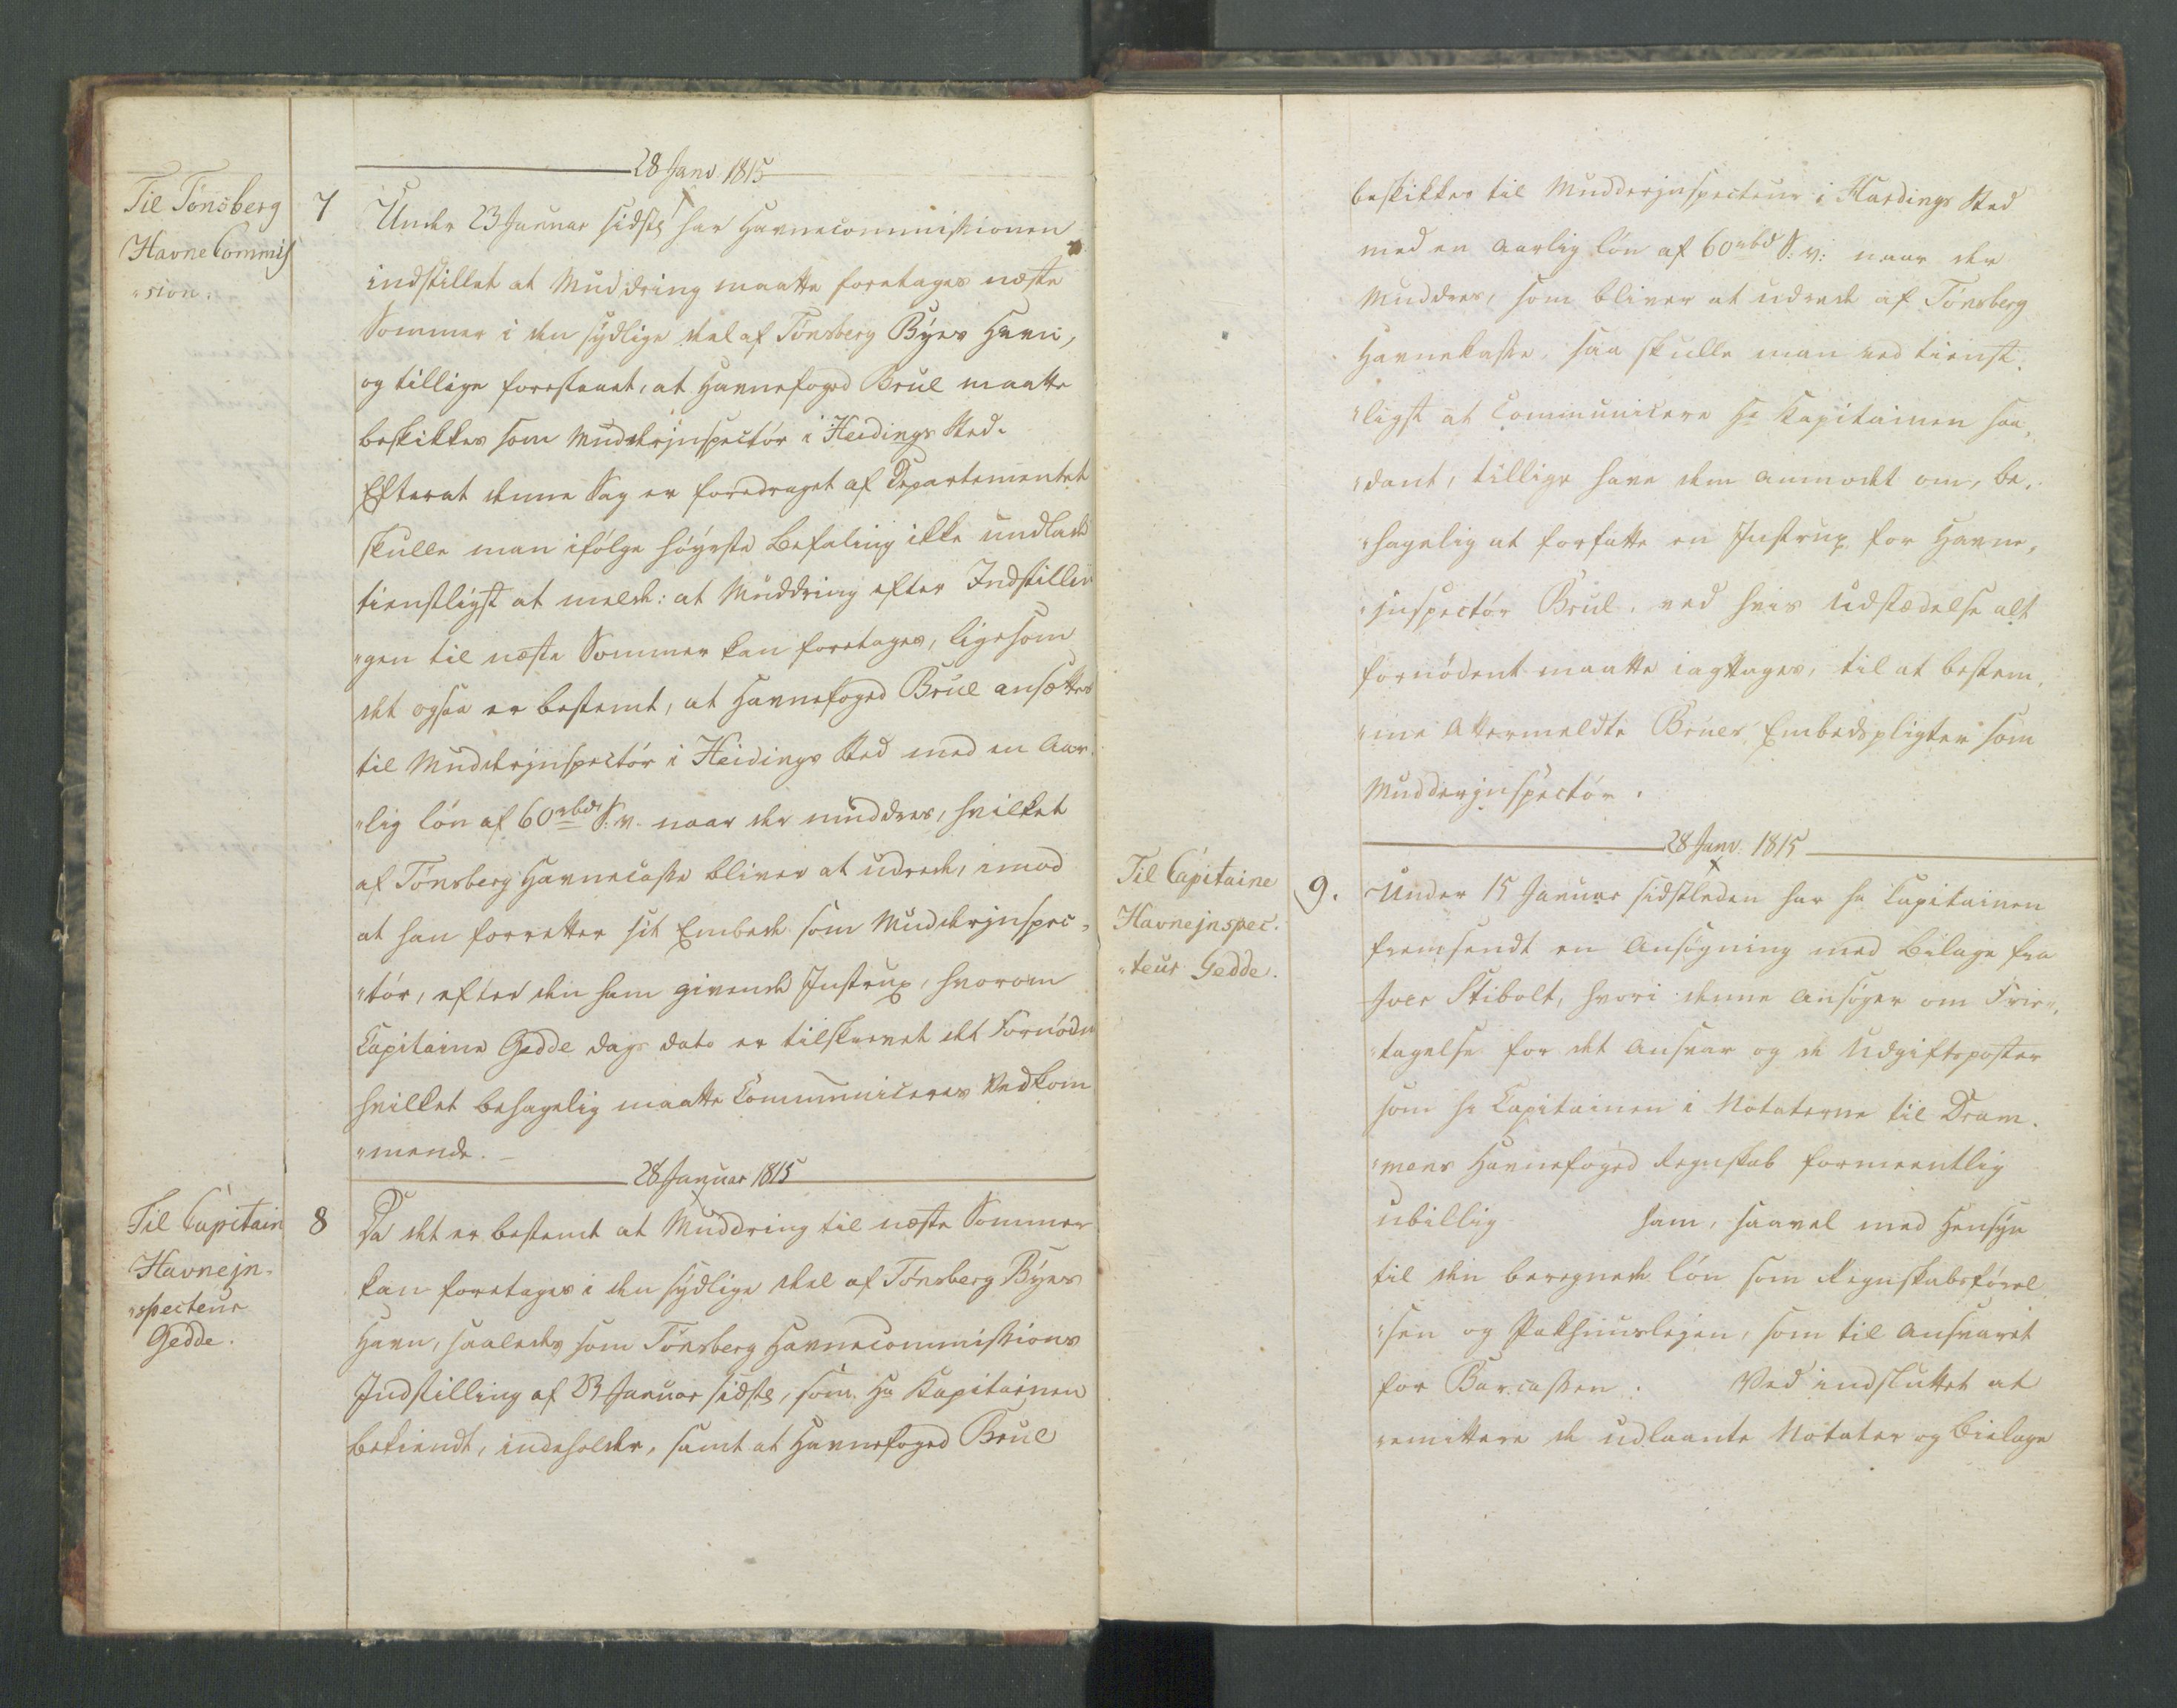 28 Janv 1815
Til Tönsberg
Havne Commis
"sion.
7
Under 23 Januar sidstl har Havnecommissionen
indstillet at Muddring maatte foretages næste
Sommer i den sydlige deel af Tönsberg Byes Havn,
og tillige foreslaaet, at Havnefoged Brul maatte
beskikkes som Mudderjnspectör i Heidings Sted.
Efterat denne Sag er foredraget af Departementet
skulle man ifölge höyeste Befaling ikke undlade
tienstligst at melde: at Muddring efter Indstillin
"gen til næste Sommer kan foretages, ligesom
det ogsaa er bestemt, at Havnefoged Brul ansættes
til Mudderjnspectör i Heidings Sted med en Aar
"lig Lön af 60 rbd S. v. naar der muddres, hvilket
af Tönsberg Havnecasse bliver at udrede, imod
at han forretter sit Embede som Mudderjnspec
"tör, efter den ham givende Instrux, hvorom
Capitaine Gedde Dags Dato er tilskrevet det Fornödn
hvilket behagelig maatte Communiceres Vedkom
"mende.
28 Januar 1815
Til Capitain
Havnejn-
"specteur
Gedde.
8
Da det er bestemt at Muddring til næste Sommer
kan foretages i den sydlige deel af Tönsberg Byes
Havn, saaledes som Tönsberg Havnecommissions
Indstilling af 23 Januar sidstl, som Hr Kapitainen
bekiendt, indeholder, samt at Havnefoged Brul
beskikkes til Mudderjnspecteur i Hardings Sted
med en aarlig lön af 60 rbd S. v: naar der
Muddres, som bliver at udrede af Tönsberg
Havnekasse, saa skulle man ved tienst
"ligst at Communicere Hr Kapitainen saa
"dant, tillige have dem anmodet om, be-
"hagelig at forfatte en Instrux for Havne-
"jnspectör Brul, ved hvis Udstædelse alt
fornödent maatte iagttages, til at bestem
"me Overmeldte Bruls Embedspligter som
Mudderjnspectör.
28 Janv. 1815
Til Capitaine
Havnejnspec.
"teur Gedde.
9.
Under 15 Januar sidstleden har Hr Capitainen
fremsendt en Ansögning med Bilage fra
Joer Stibolt, hvori denne ansöger om Frie-
"tagelse for det Ansvar og de Udgiftsposter
som Hr Capitainen i Notaterne til Dram-
"mens Havnefoged Regnskab formeentlig
ubillig ham, saavel med Hensyn
til den beregnede Lön som Regnskabsförel
"sen og Pakhuuslejen, som til Ansvaret
for Barcassen. Ved indsluttet at
remittere de udlaante Notater og Bielage